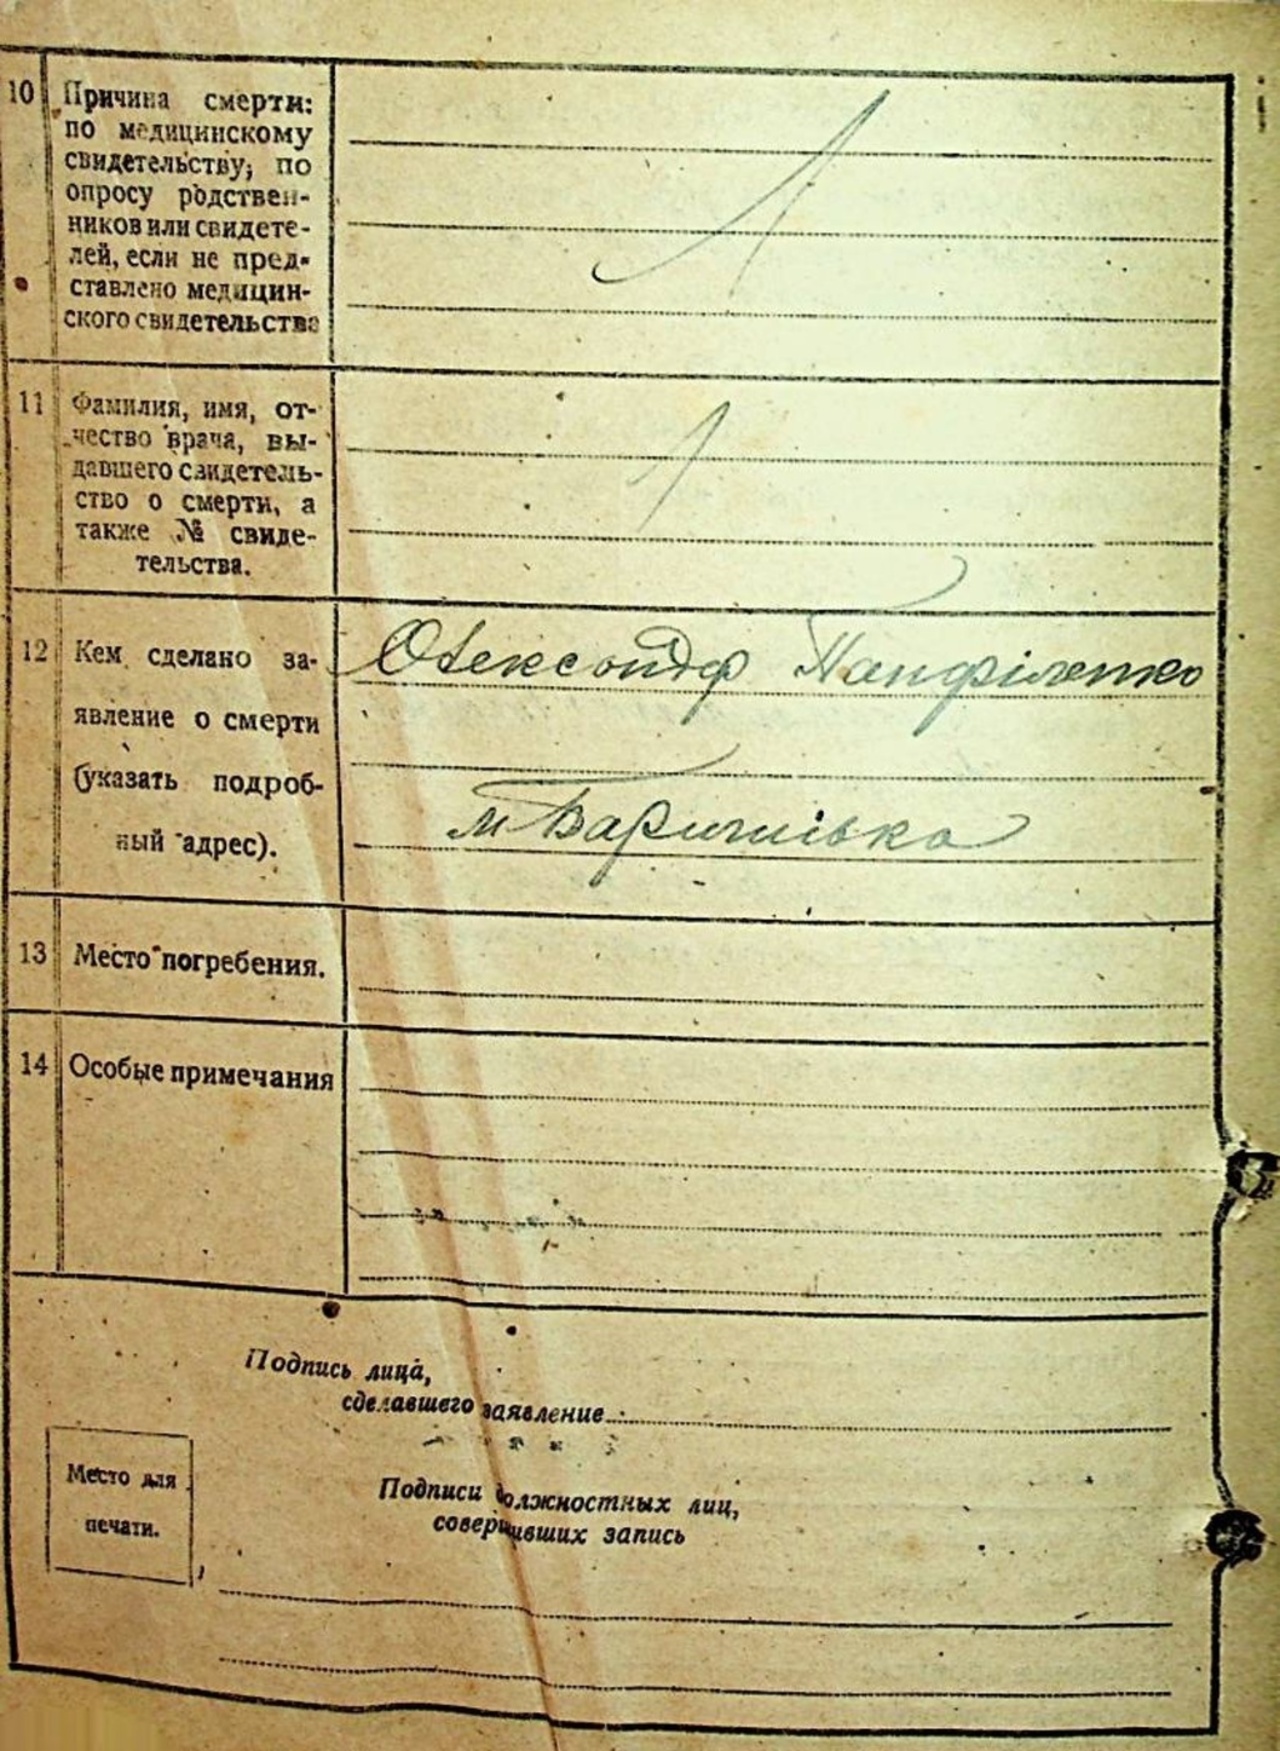 10 Причина смерти:
по медицинскому
свидетельству; по
опросу родствен-
ников или свидете-
лей, если не пред-
ставлено медицин-
ского свидетельства
11 Фамилия, имя, от-
чество врача, вы-
давшего свидетель-
ство о смерти, а
также № свиде-
тельства.
12 Кем сделано за- Олександр Панфіленко
явление о смерти
(указать подроб-
ный адрес). м Баришівка
13 Место погребения.
14 Особые примечания
Подпись лица,
сделавшего заявление
Место для
печати.
Подписи должностных лиц,
совершивших запись